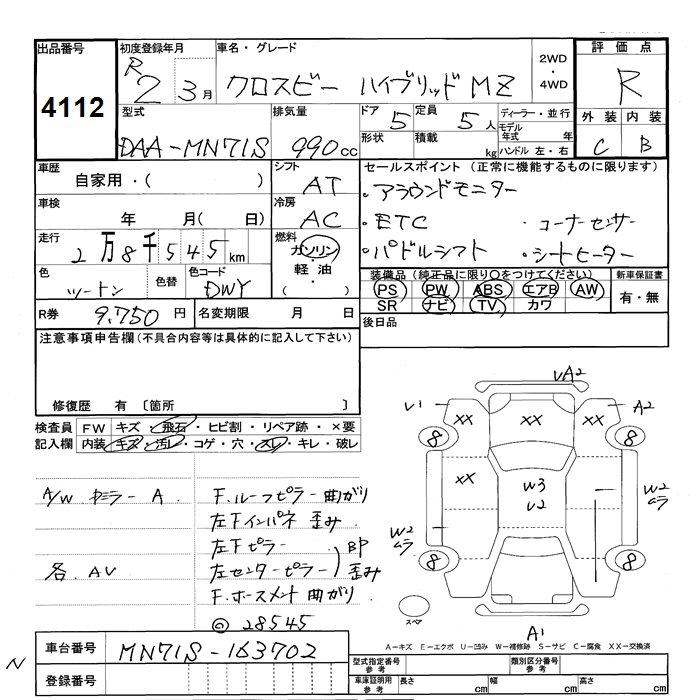 出品番号
4112
初度登録年月
R2 3月
車名・グレード
クロスビー ハイブリッドMZ
2WD
・
4WD
評価点
R
型式
DAA-MN71S
排気量
990cc
ドア
5
定員
5人
形状
積載
kg
ディーラー・並行
モデル年式 年
ハンドル 左・右
外装
C
内装
B
車歴
自家用・( )
シフト
AT
セールスポイント(正常に機能するものに限ります)
・アラウンドモニター
・ETC ・コーナーセンサー
・パドルシフト ・シートヒーター
車検
年 月( 日)
冷房
AC
走行
2万8千545km
燃料
ガソリン
軽油・
( )
色
ツートン
色替
色コード
DWY
装備品(純正品に限り〇をつけてください)
PS PW ABS エアB AW
SR ナビ TV カワ
新車保証書
有・無
R券 9,750円
名変期限 月 日
後日品
注意事項申告欄(不具合内容等は具体的に記入して下さい)
修復歴 有〔箇所 〕
検査員記入欄
FW キズ・飛石・ヒビ割・リペア跡・×要
内装 キズ・汚レ・コゲ・穴・スレ・キレ・破レ
A/W A
各.AV
F.ルーフピラー曲がり
左Fインパネ 歪み
左Fピラー
左センターピラー BP歪み
F.ホースメント曲がり
◎28545
VA2
V1
XX
XX
XX
A2
8
8
XX
W3
V2
W2
ムラ
W2
ムラ
8
8
スペア
A1
A-キズ E-エクボ U-凹み W-補修跡 S-サビ C-腐食 XX-交換済
車台番号
MN71S-163702
N
登録番号
型式指定番号
参考
類別区分番号
参考
車庫証明用
参考
長さ cm
幅 cm
高さ cm